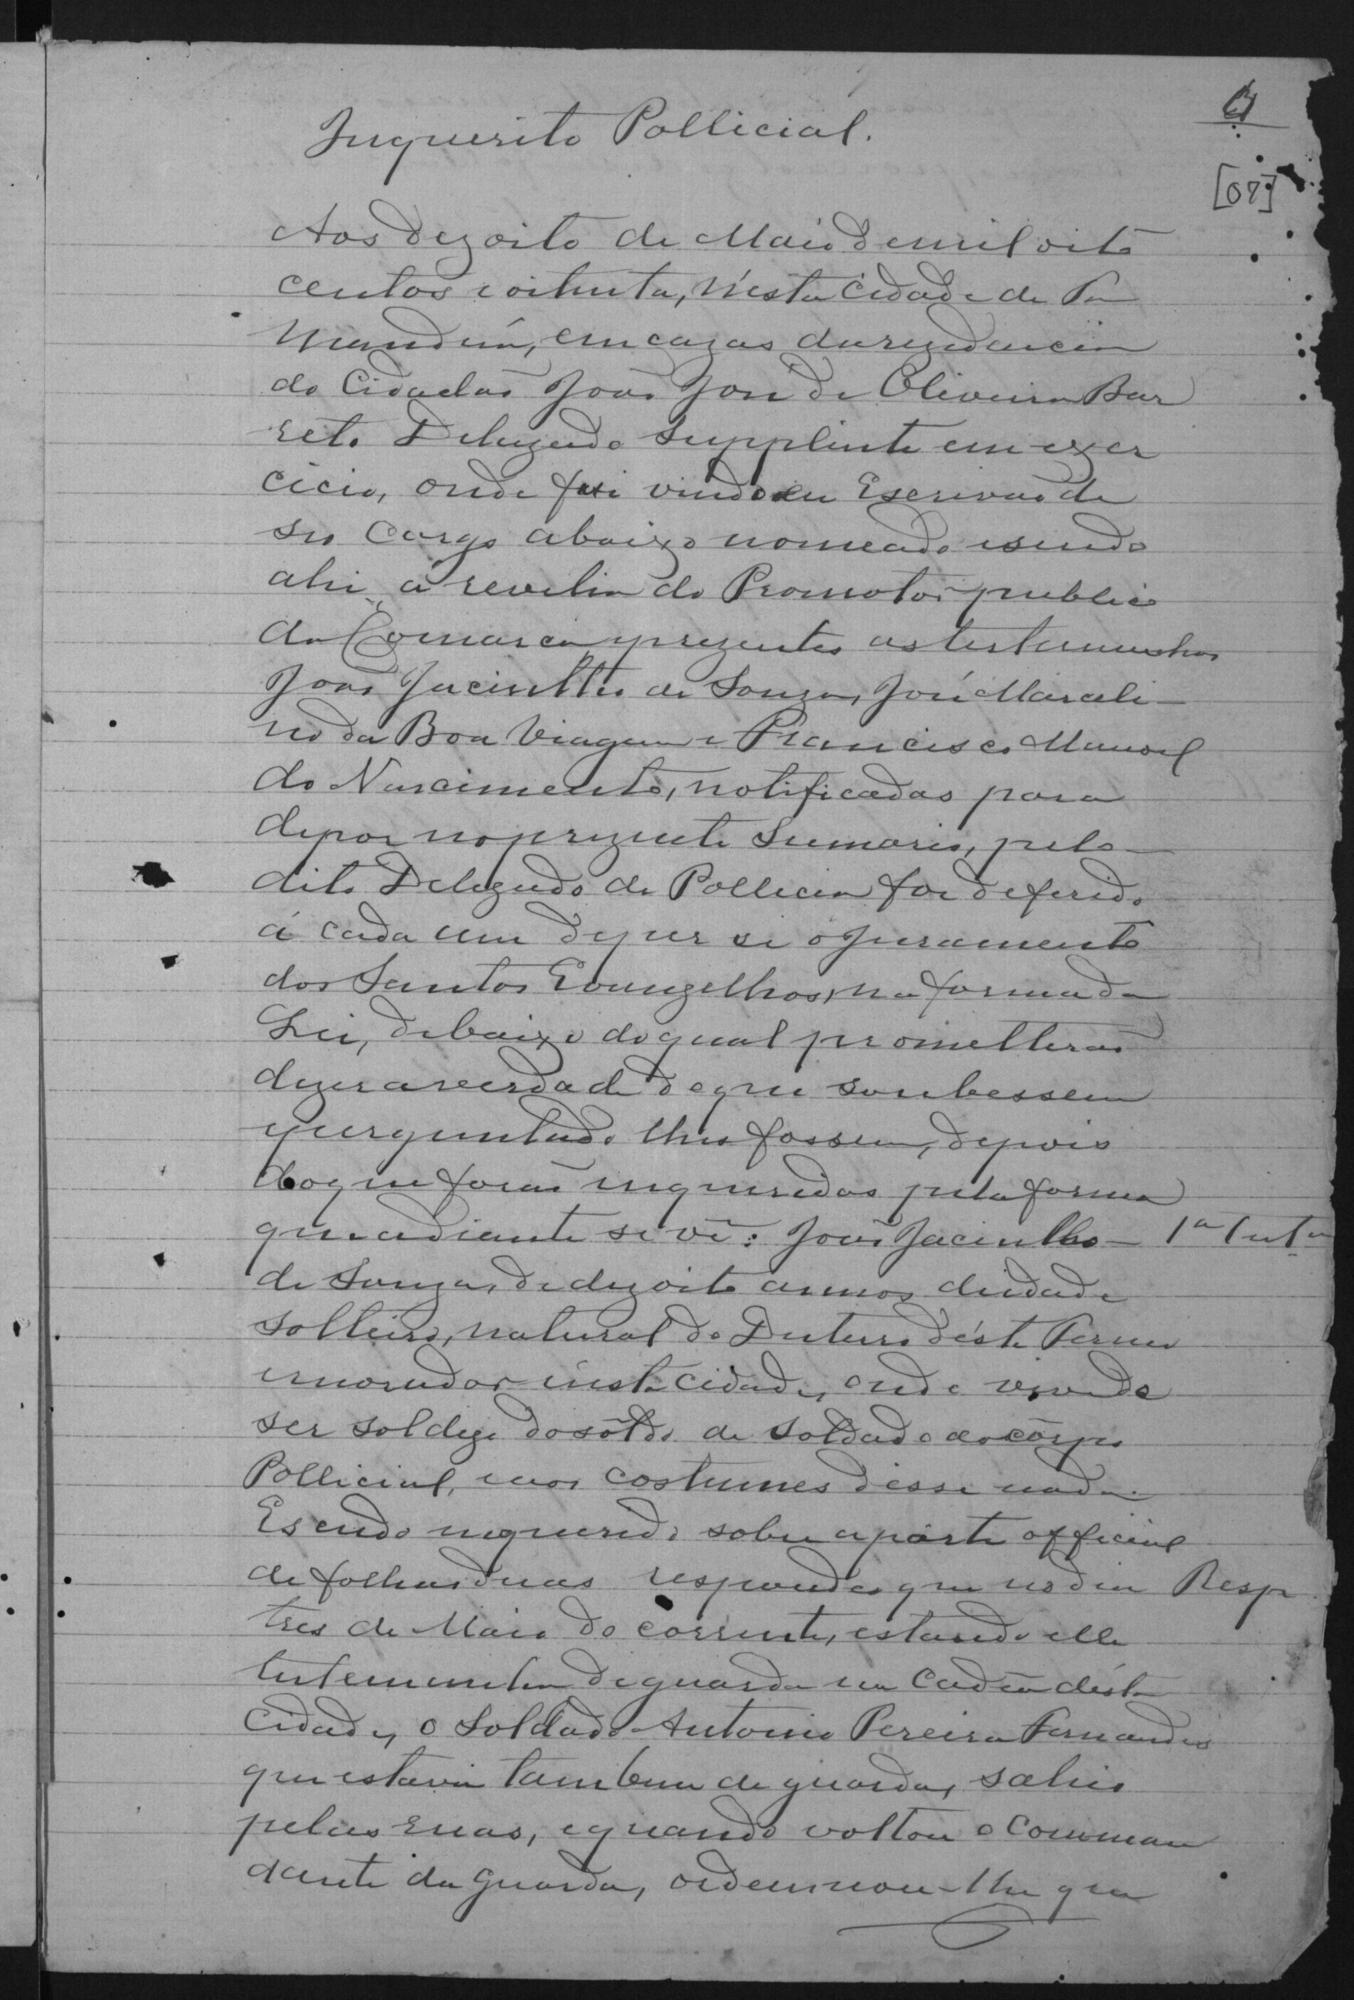 Inquerito Pollicial.
[07]
Aos dezoito de Maio de mil oito
centos e oitenta, n'esta cidade de Pa
nandúa, em cazas da rezidencia
do Cidadão João José de Oliveira Bar
reto Delegado Supplente em exer
cicio, onde foi vindo eu Escrivão de
seo cargo abaixo nomeado e sendo
ahi, á revelia do Promotor publico
da Comarca, prezentes as testemunhas
João Jacintho de Souza, José Marceli-
no da Boa Viagem e Francisco Manoel
do Nascimento, notificadas para
depor no prezente Sumario, pelo-
dito Delegado de Pollicia foi deferido
á cada um de per si o Juramento
dos Santos Evangelhos, na forma da
Lei, debaixo do qual prometterão
dizer a verdade do que soubessem
e perguntado lhes fossem, depois
do que forão inqueridas pela forma
que adiante se vê: João Jacintho- 1ª Testª
de Souza, de dezoito annos de idade
solteiro, natural do Desterro d'ésta
e morador n'ésta cidade, onde vive de
ser soldo do sôldo de Soldado do côrpo
Pollicial, e aos costumes disse nada.
E sendo inquerido sobre a parte official
de folhas duas respondeo que no dia Resp
tres de Maio do corrente, estando elle
testemunha de guarda na Cadêa d'ésta
Cidade, o Soldado Antonio Pereira Fernandes
que estava tambem de guarda, sahio
pelas ruas, e quando voltou o Comman
dante da guarda, ordennou-lhe que